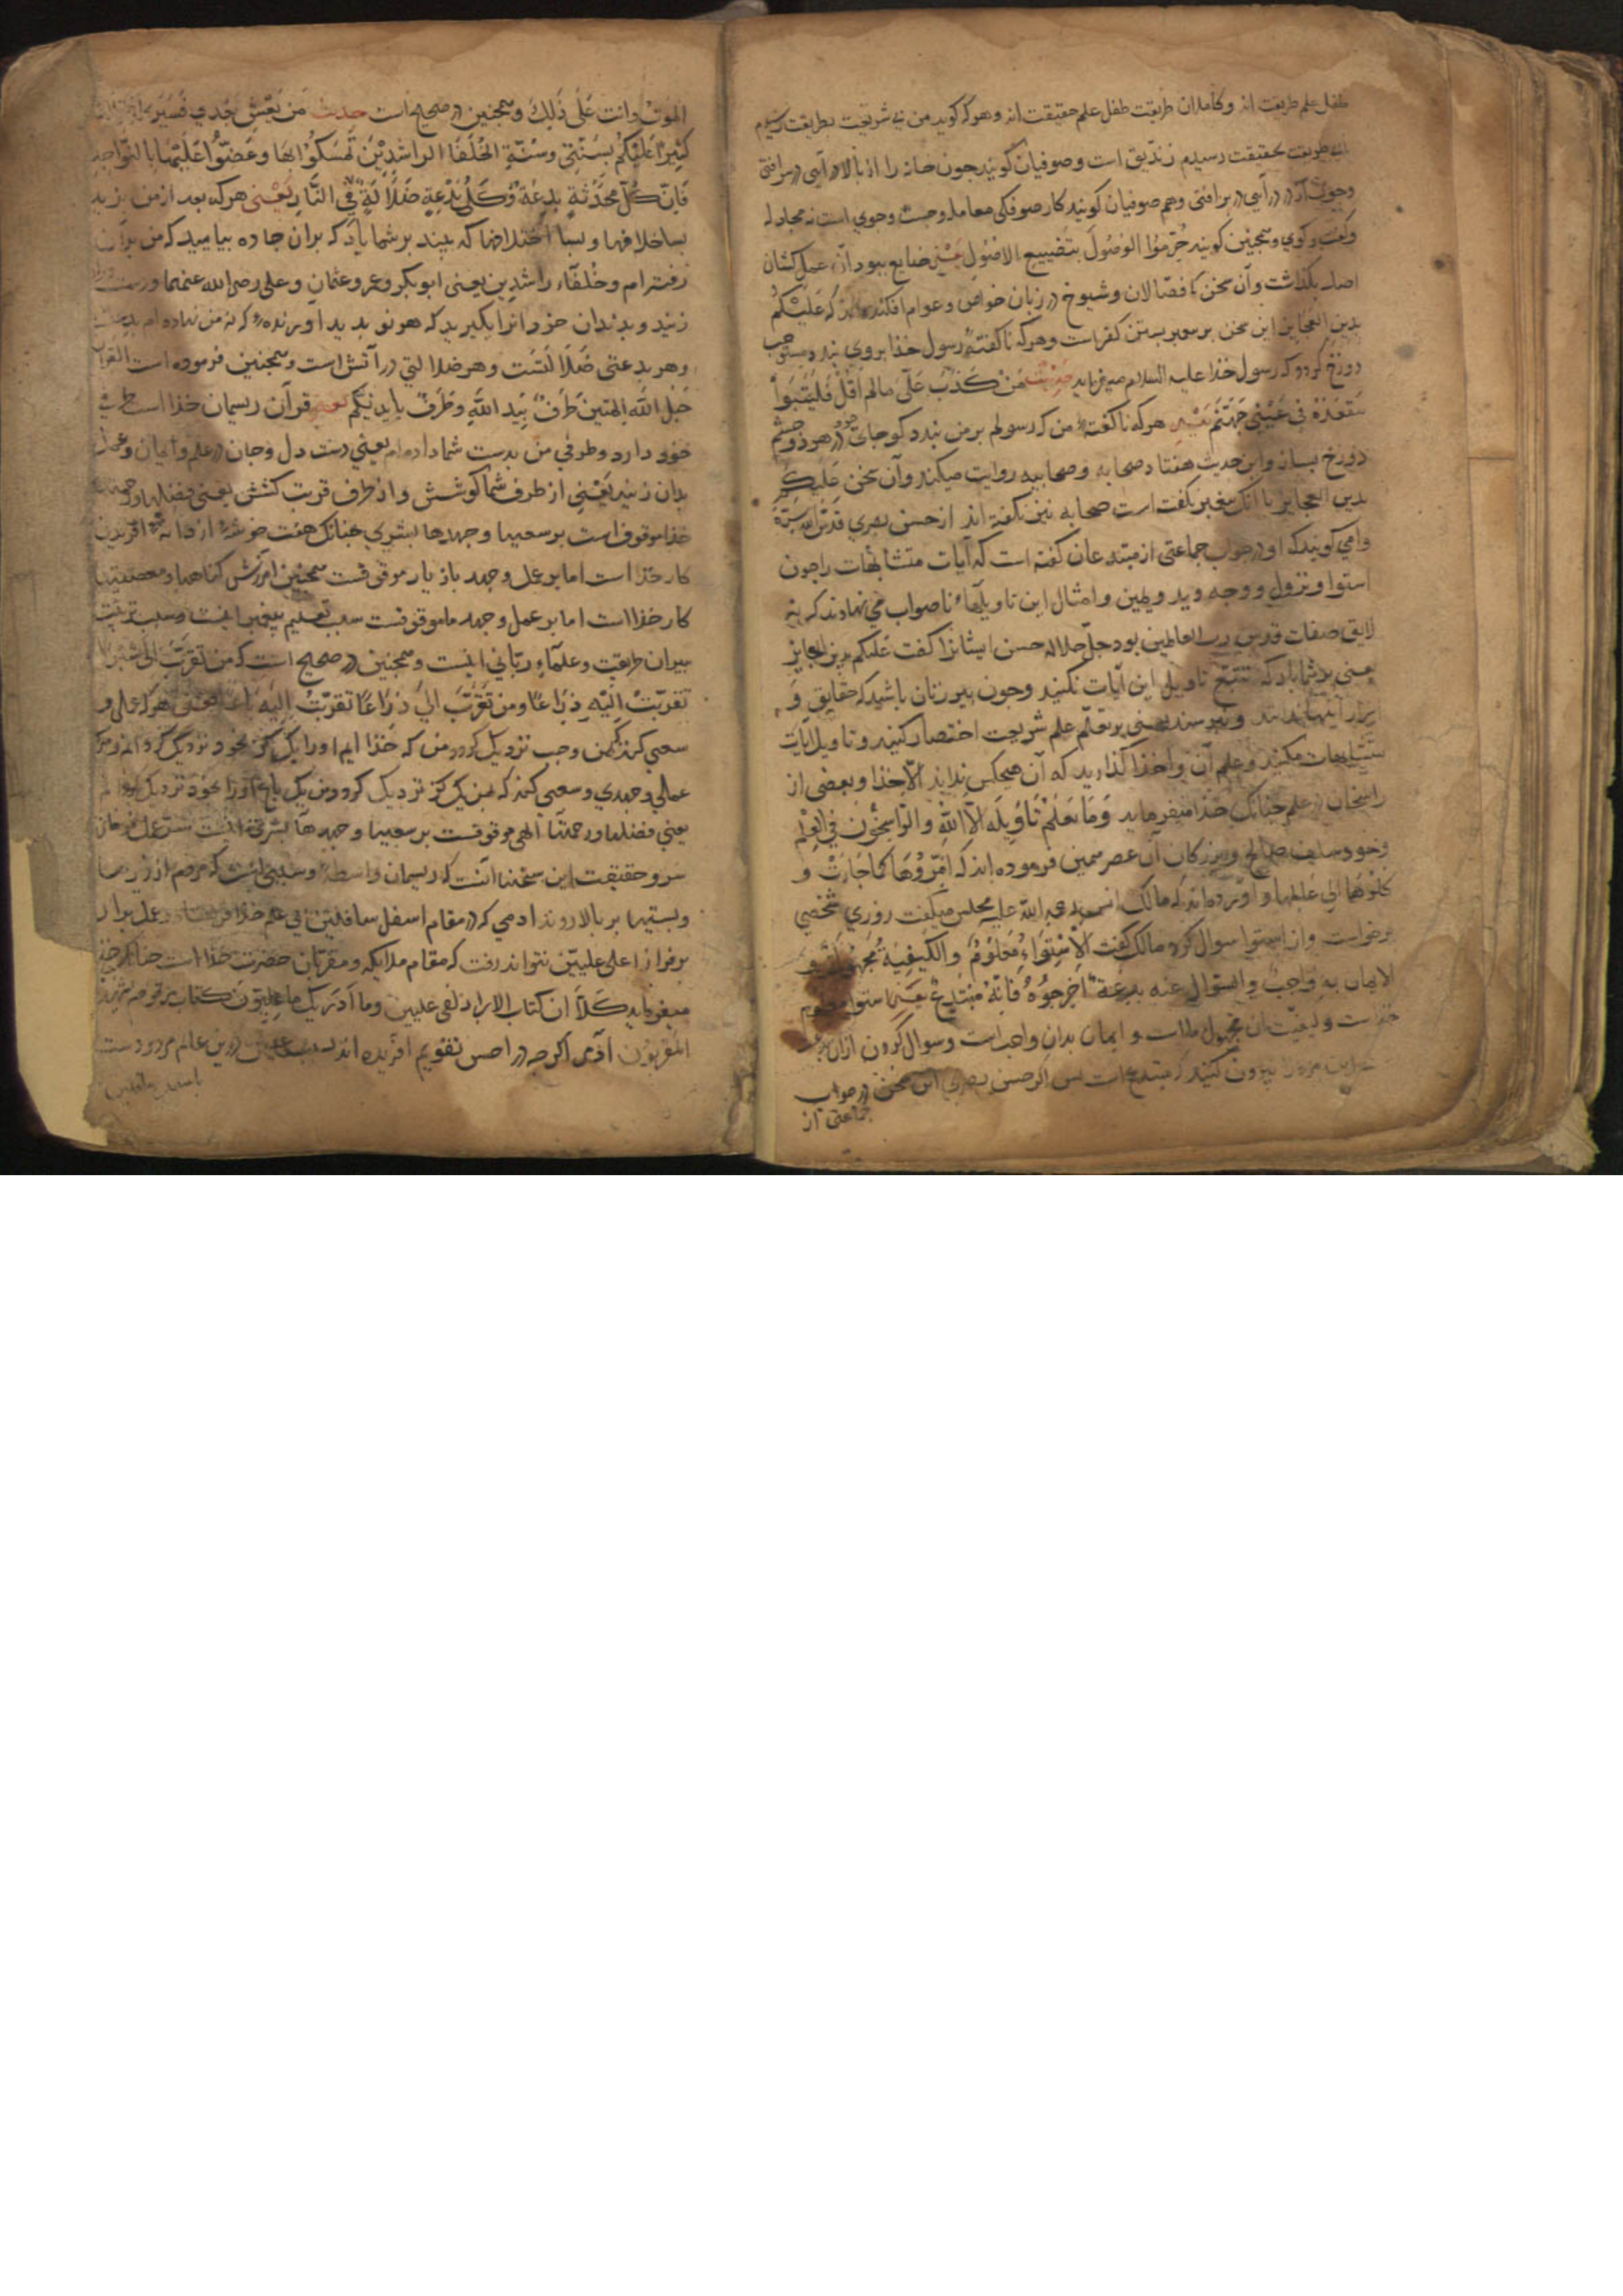 طفل علم طریقت اند و کاملان طریقت طفل علم حقیقت اند و هر که کوید من بی شریعت بطریقت رسیدم
بی طریقت بحقیقت رسیدم زندیق است و صوفیان کویند جون خانه را از بالا در آیی در سر افتی
و جون از در در آیی در بر افتی و هم صوفیان کویند کار صوفکی معامله و جست وجوی است نه مجادله
و کفت وکوی و همجنین کویند حُرّموُا الوصُولَ بتضییع الاصُولِ یعنی ضایع ببود از عمل کشان
اصل بکذاشت وآن سخن کا فضالان و شیوخ در زبان خواص و عوام افکنده اند که عَلَیْکُم
بدینِ العَجایز این سخن بر پیغمبر بستن کفر است و هر که ناکفتهٔ رسول خذا بر وی بندد مستوجب
دوزخ کردد که رسول خذا علیه السلام میفرماید حدیث مَنْ کَذَبَ عَلَیّ مالم اَقُلْ فَلْیَتَبَوَّأْ
مَقْعَدَهُ فی عَیْنَیْ جَهَنَّمَ یعنی هر که ناکفتهٔ من که رسولم بر من بندد کو جای خود در هر دو چشم
دوزخ بساز و این حدیث هفتاد صحابه و صحابیه روایت میکند وآن سخن علیکم
بدین العجایز با آنک پیغمبر نکفت است صحابه نیز نکفته اند از حسن بصری قدّس الله سرّه
وامی کویند که او در جواب جماعتی از مبتدعان کفته است که آیات متشابهات را جون
استوا و نزول و وجه و ید و یمین و امثال این تاویلهاء ناصواب می نهادند که نه
لایق صفات قدس رب العالمین بود جلّ جلاله حسن ایشانرا کفت عَلیکم بدین العجایز
یعنی بر شما باد که تتبّع تاویل این آیات نکنید و جون پیر زنان باشید که حقایق و
اسرار اینها ندانند و نپرسند یعنی بر تعلّم علم شریعت اختصار کنید و تاویل آیات
متشابهات مکنید و علم آن وا خذا کذارید که آن هیجکس نداند الّا خذا و بعضی از
راسخان در علم جنانک خذا میفرماید وَمَا یَعْلَمُ تَأوِیلَه اِلّا اللهُ والرّاسِخُوْنَ فی العِلْمِ
و خود سلف صالح و بزرکان آن عصر همین فرموده اند که اَمِرّوُهَا کَمَا جَاءَتْ وَ
کِلُوْهَا اِلی عَالِمِها و آورده اند که مالک انس رحمة الله علیه مجلس میکفت روزی شخصی
برخواست و از استوا سوال کرد مالک کفت الاِسْتِوَاءُ مَعْلُوْمٌ والکَیْفِیَةُ مَجْهُولَةٌ و
الایمان بِهِ وَاجبٌ والسُّوال عنه بِدعَةٌ اَخرِجُوُهُ فَاِنّهُ مُبْتَدِعٌ یعنی استوا معلوم
است و کیفیت آن مجهول است و ایمان بدان واجب است و سوال کردن از آن بدعت
این مرد را بیرون کنید که مبتدع است بس اکر حسن بصری این سخن در جواب
جماعتی از
الموتُ وانت عَلَی ذَلِکَ و همجنین در صحیح است حدیث مَن یَعِشْ بَعْدی فَسَیَرَی اختلافًا
کَثِیرًا عَلَیْکُم بسُنَّتِی وسُنَّةِ الخُلَفَا الراشدِیْنَ تَمسَّکوُا بها وعَضّوُا عَلَیْهَا بالنّواجِذِ
فَاِنّ کُلَّ محْدَثةٍ بِدعَةٌ وَکُلُّ بِدْعِةٍ ضَلَالَةٌ فی النَّارِ یَعْنی هر که بعد از من بزید
بسا خلافها و بسا اختلافها که بیند بر شما باد که بران جاده بیایید که من بر آن
رفته ام و خلفآء راشدین یعنی ابوبکر و عمر و عثمان و علی رضی الله عنهما و دست در آن
زنید و بدندان خود آنرا بکیرید که هر نو بدید آورنده‌ٔ که نه من نهاده ام بدعتست
و هر بدعتی ضَلَالَتَسْت و هر ضلالتی در آتش است و همجنین فرموده است القرآن
حَبْلُ اللهِ المتین طَرَفٌ بِیَدِ اللهِ وطَرَفٌ بأیدیکُم یعنی قرآن ریسمان خذا است طرفی
خود دارد و طرفی من بدست شما داده ام یعنی دست دل و جان در علم و ایمان و عمل
بدان زنید یَعْنِی از طرف شما کوشش و از طرف قربت کشش یعنی فضلها و رحمتهاء
خذا موقوف است بر سعیها و جهدها بشری جنانک هفت خوشهٔ از دانهٔ آفریدن
کار خذا است اما بر عمل و جهد بازیار موقوفست همجنین آمرزش کناهها و معصیتها
کار خذا است اما بر عمل و جهد ما موقوفست سبب تعلیم پیغمبر اینست و سبب تربیت
پیران طریقت و علمآءِ ربّانی اینست و همجنین در صحیح است که من تَقَرَّبَ اِلَیَّ شِبْرًا
تَقَرّبْتُ اِلَیْهِ ذِرَاعًا ومن تَقَرَّبَ اِلیَّ ذِرَاعًا تَقَرّبْتُ اِلَیْهِ بَاعًا یعنی هر که عملی و
سعی کند که بمن وجب نزدیک کردد من که خذا ایم او را یک کز بخود نزدیک کردانم و هر که
عملی و جهدی و سعیی کند که بمن یک کز نزدیک کردد من یک باع او را بخود نزدیک کردانم
یعنی فضلها و رحمتهاء الهی موقوفست بر سعیها و جهدهآء بشری اینست سرّ عمل فرمان
سر و حقیقت این سخنها آنست که ریسمان واسطه و سببی است که مردم از زیرها
و بستیها بر بالا روند ادمی که در مقام اسفل سافلین بی علم خذا و بی عمل برابر
بر فراز اعلی علیین نتواند رفت که مقام ملایکه و مقربان حضرت خذا است جنانک خذا
میفرماید کَلاّ ان کتاب الابرار لفی علیین وما اَدریکَ ما عِلِیّوْنَ کتابٌ مَرقومٌ یَشهَدُهُ
المقربُوْن آدمی اکرجه در احسن تقویم آفریده اند در این عالم مردود است
باسفل سافلین